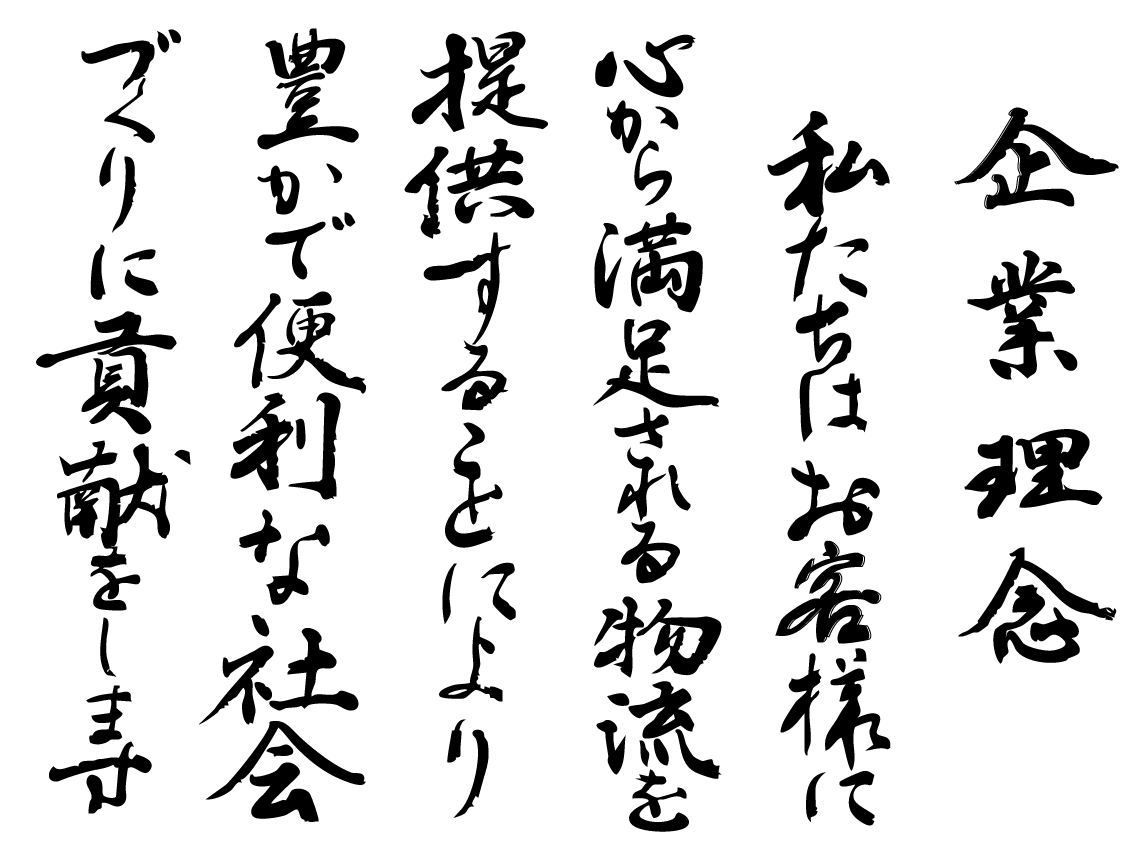 企業理念
私たちはお客様に
心から満足される物流を
提供することにより
豊かで便利な社会
づくりに貢献をします